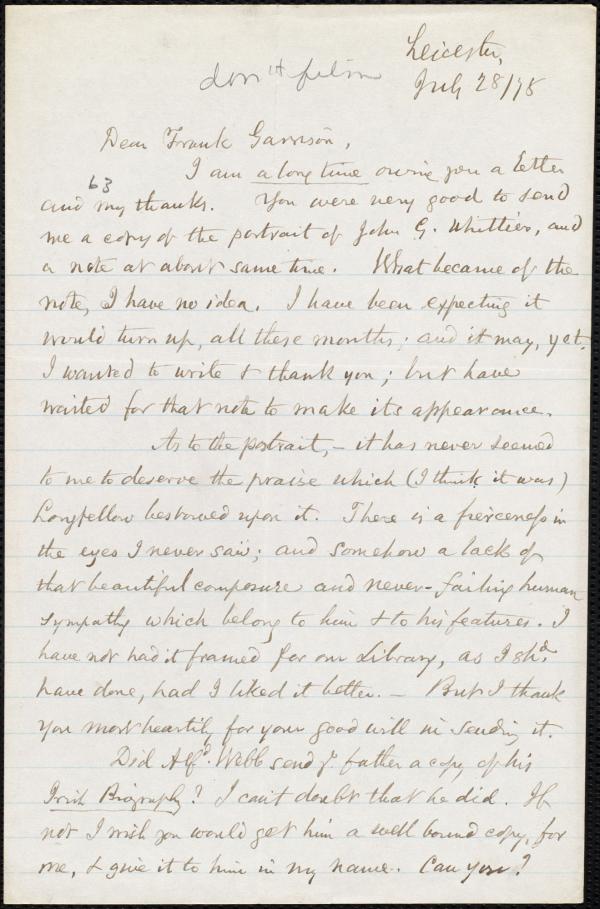 Leicester,
July 28/78
don't film
Dear Frank Garrison,
I am a long time owing you a letter
63
and my thanks. You were very good to send
me a copy of the portrait of John G. Whittier, and
a note at about same time. What became of the
note, I have no idea. I have been expecting it
would turn up, all these months; and it may, yet.
I wanted to write & thank you; but have
waited for that note to make its appearance.
As to the portrait, – it has never seemed
to me to deserve the praise which (I think it was)
Longfellow bestowed upon it. There is a fierceness in
the eyes I never saw; and somehow a lack of
that beautiful composure and never-failing human
sympathy which belong to him & to his features. I
have not had it framed for our Library, as I shd.
have done, had I liked it better. – But I thank
you most heartily for your good will in sending it.
Did Alfd. Webb send yr father a copy of his
Irish Biography? I can't doubt that he did. If
not I wish you would get him a well bound copy, for
me, & give it to him in my name. Can you?